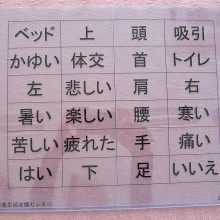 ベッド 上 頭 吸引
かゆい 体交 首 トイレ
左 悲しい 肩 右
暑い 楽しい 腰 寒い
苦しい 疲れた 手 痛い
はい 下 足 いいえ
生活支援センター